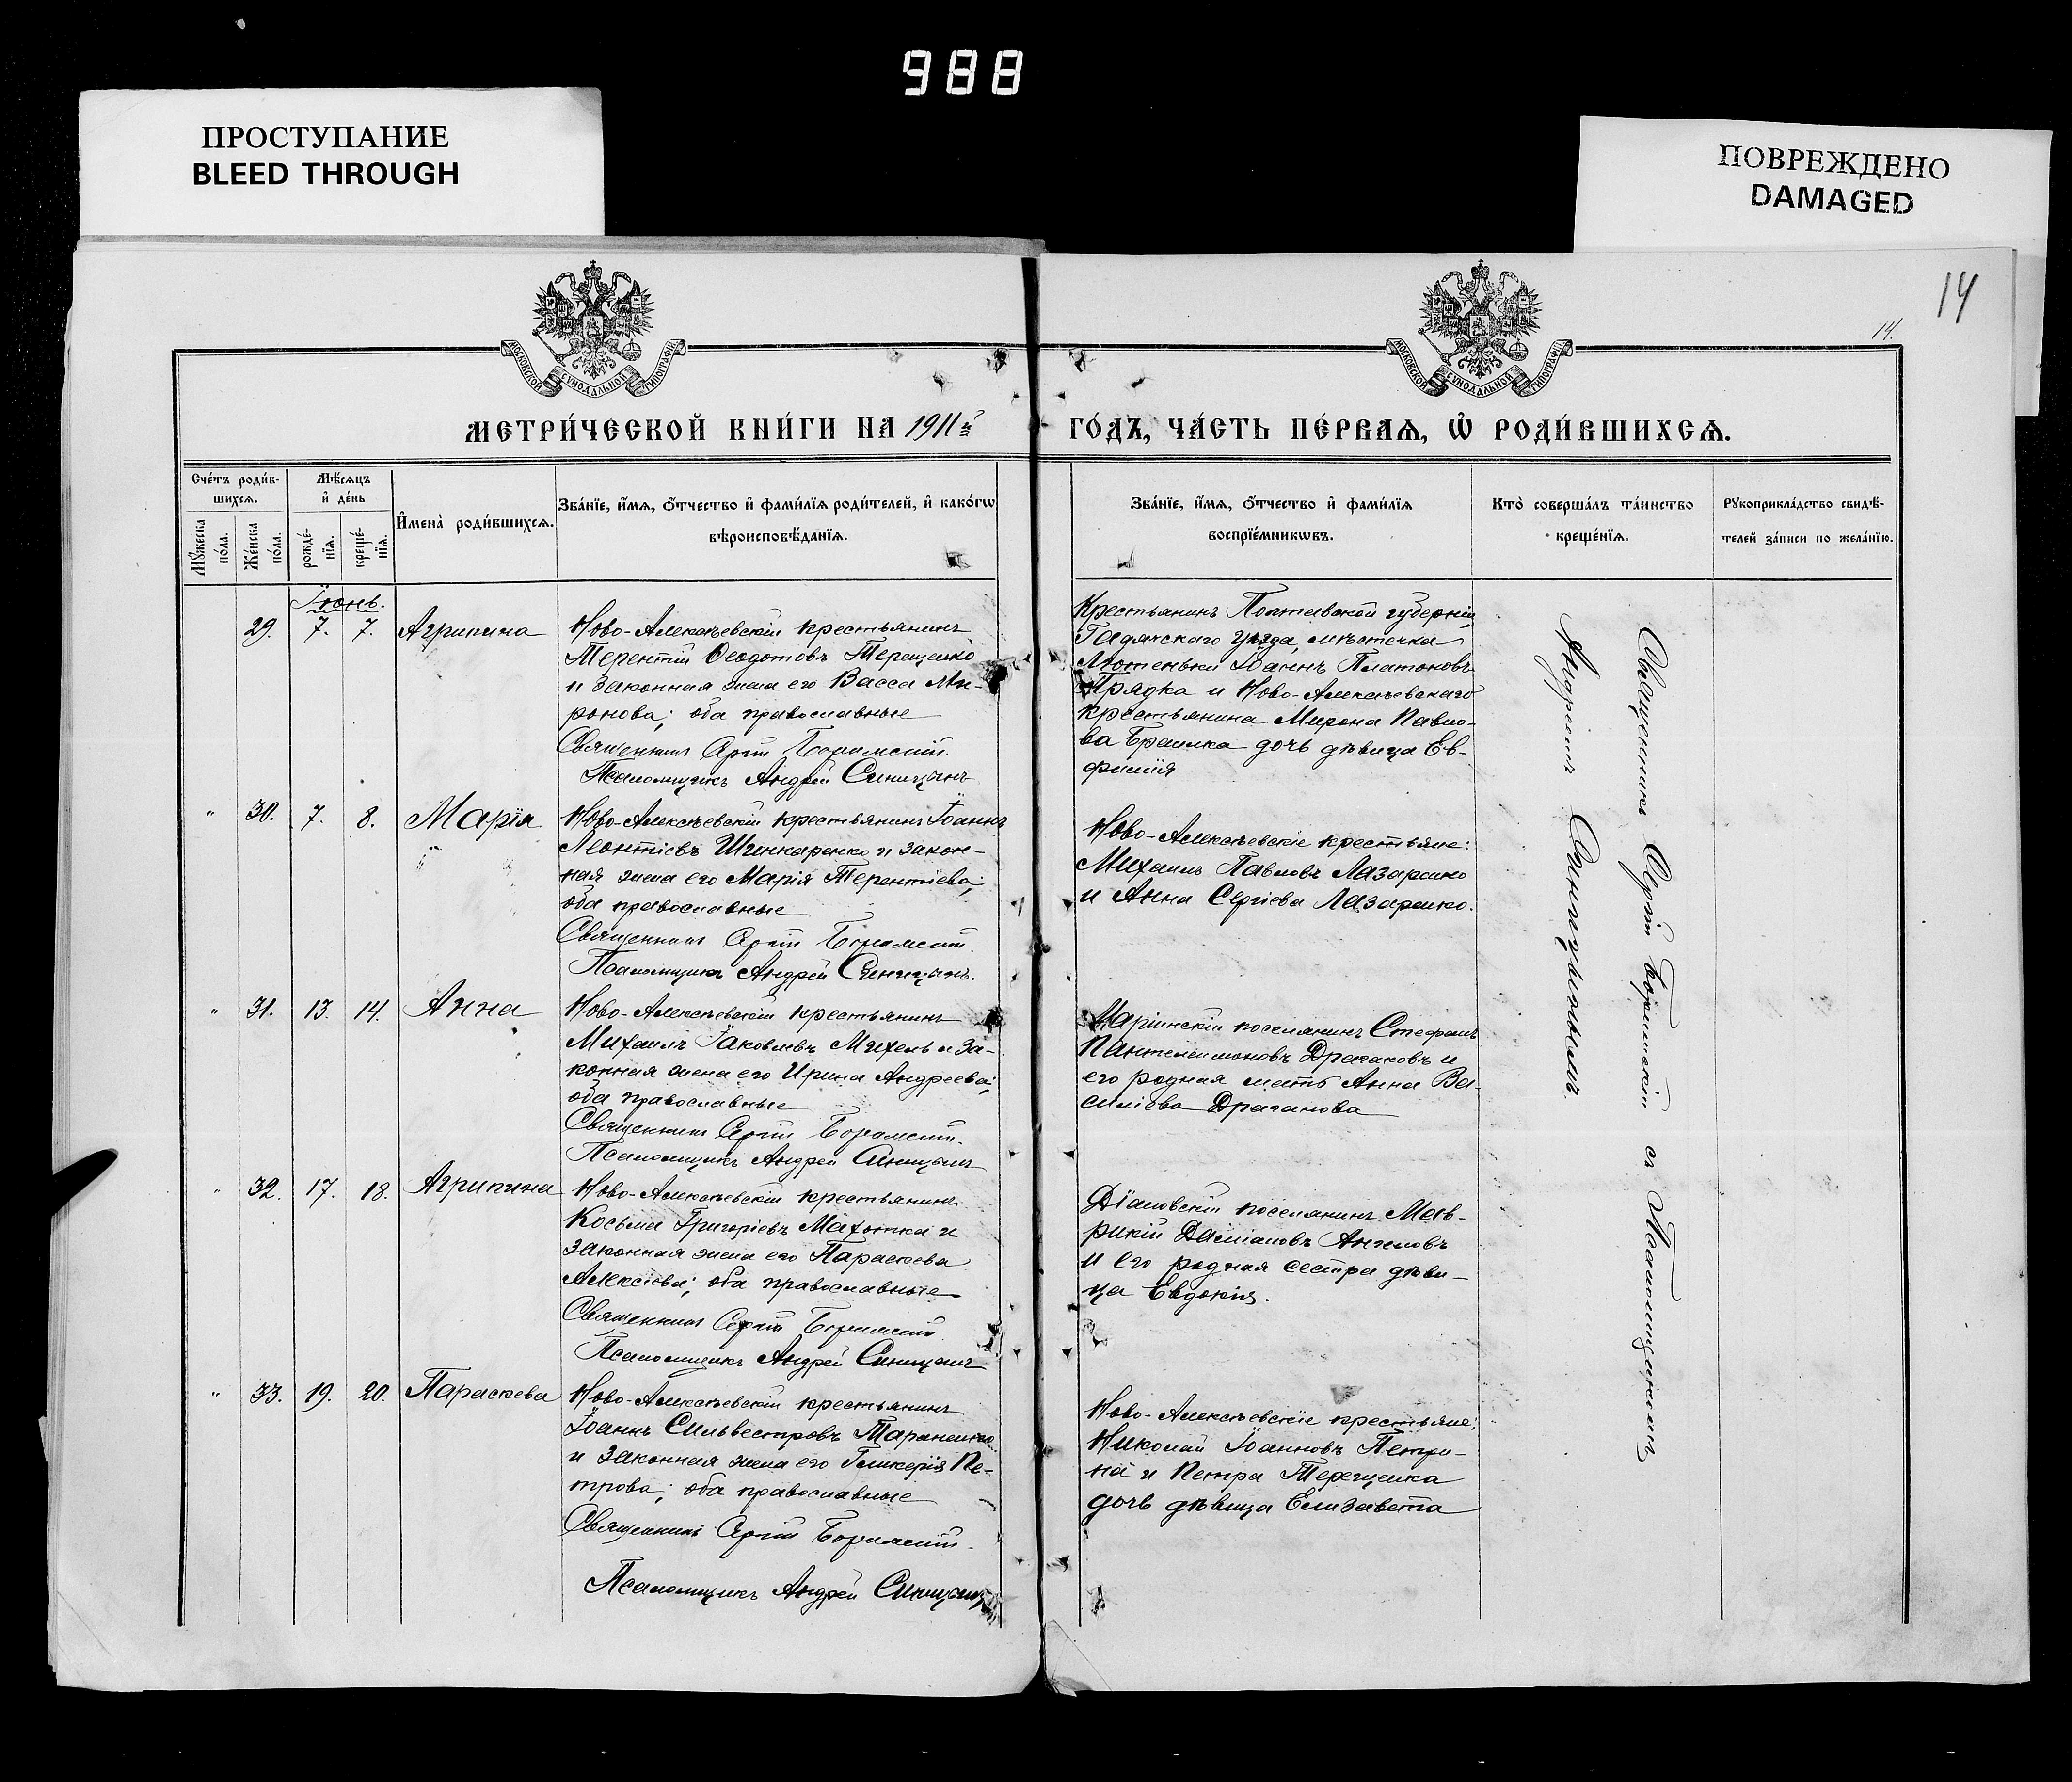 988
ПРОСТУПАНИЕ
BLEED THROUGH
ПОВРЕЖДЕНО
DAMAGED
14
14.
МОСКОВСКОЙ СѴНОДАЛЬНОЙ ТИПОГРАФІИ
МОСКОВСКОЙ СѴНОДАЛЬНОЙ ТИПОГРАФІИ
МЕТРИ́ЧЕСКОЙ КНИ́ГИ НА 1911й ГО́ДЪ, ЧА́СТЬ ПЕ́РВАѦ, Ѡ РОДИ́ВШИХСѦ.
Сче́тъ роди́в-
шихсѧ.
Мꙋ́жеска по́ла.
Же́нска по́ла.
Мѣ́сѧцъ
и҆ де́нь
рожде́-
нїѧ.
креще́-
нїѧ.
И҆мена̀ роди́вшихсѧ.
Зва́нїе, и҆́мѧ, ѻ҆́тчество и҆ фами́лїѧ роди́телей, и҆ како́гѡ
вѣроисповѣ́данїѧ.
Зва́нїе, и҆́мѧ, ѻ҆́тчество и҆ фами́лїѧ
воспрїе́мникѡвъ.
Кто̀ соверша́лъ та́инство
креще́нїѧ.
Рꙋкоприкла́дство свидѣ́-
телей за́писи по жела́нїю.
Іюнь.
29. 7. 7. Агрипина
Ново-Алексѣевскій крестьянинъ
Терентій Ѳеодотовъ Терещенко
и законная жена его Васса Ми-
ронова; оба православные
Священникъ Сергій
Псаломщикъ Андрей Синицынъ
Крестьянинъ Полтавской губерніи,
Гадячскаго уѣзда, мѣстечка
Лютеньки Іоаннъ Платоновъ
Прядка и Ново-Алексѣевскаго
крестьянина Мирона Павло-
ва дочь дѣвица Ев-
фимія
" 30. 7. 8. Марія
Ново-Алексѣевскій крестьянинъ Іоаннъ
Леонтіевъ Шинкаренко и закон-
ная жена его Марія Терентіева;
оба православные
Священникъ Сергій
Псаломщикъ Андрей Синицынъ.
Ново-Алексѣевскіе крестьяне:
Михаилъ Павловъ Лазаренко
и Анна Сергіева Лазаренко.
" 31. 13. 14. Анна
Ново-Алексѣевскій крестьянинъ
Михаилъ Іаковлевъ и за-
конная жена его Ирина Андреева;
оба православные
Священникъ Сергій
Псаломщикъ Андрей Синицынъ
Маріинскій поселянинъ Стефанъ
Пантелеимоновъ Драгановъ и
его родная мать Анна Ва-
силіева Драганова
" 32. 17. 18. Агрипина
Ново-Алексѣевскій крестьянинъ
Косьма Григоріевъ Махотка и
законная жена его Параскева
Алексіева; оба православные
Священникъ Сергій
Псаломщикъ Андрей Синицынъ
Діановскій поселянинъ Мав-
рикій Даміановъ Ангеловъ
и его родная сестра дѣви-
ца Евдокія.
" 33. 19. 20. Параскева
Ново-Алексѣевскій крестьянинъ
Іоаннъ Сильвестровъ Тараненко
и законная жена его Гликерія Пе-
трова; оба православные
Священникъ Сергій
Псаломщикъ Андрей Синицынъ
Ново-Алексѣевскіе крестьяне:
Николай Іоанновъ Петри-
на и Петра Терещенка
дочь дѣвица Елизавета
Священникъ Сергій съ Псаломщикомъ
Андреемъ Синицынымъ.